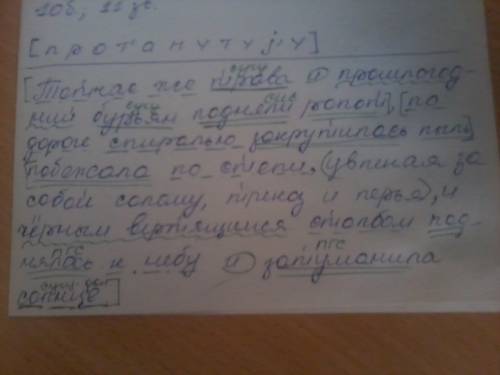 10б, 11 зс.
[п р о т а н у т у j у]
[Тотчас же трава и прошлогод-
ний бурьян подняли ропот], [по
дороге спиралью закрутилась пыль]
побежала по степи, (увлекая за
собой солому, стрекоз и перья), и
чёрным вертящимся столбом под-
нялась к небу и затуманила
солнце]